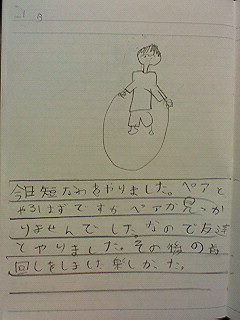 今日短なわをやりました。ペアと
やるはずですがペアが見つか
りませんでした。なので友達
とやりました。その後の
回しをしました楽しかった。